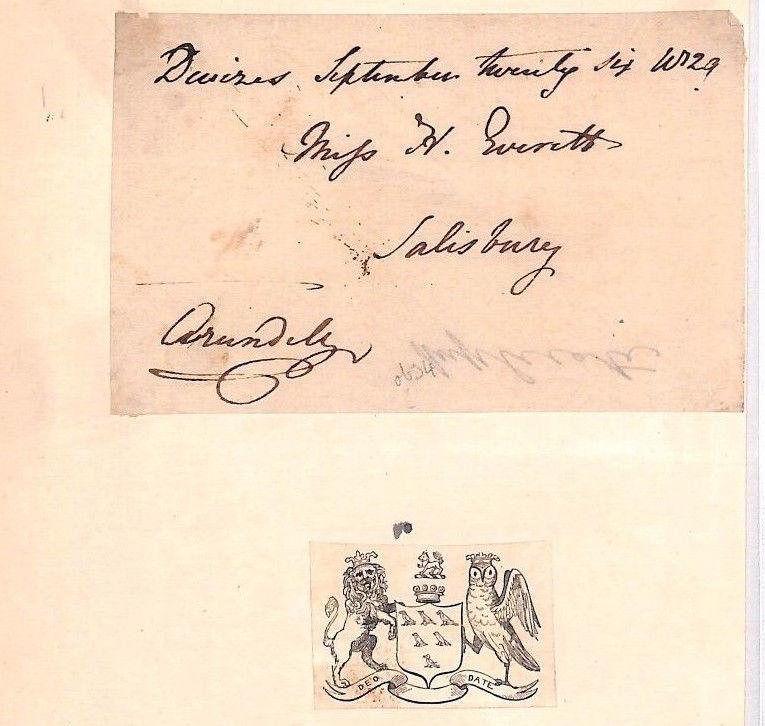 Devizes September twenty six 1829
Miss H. Everett
Salisbury
Arundell
0634
DEO DATE